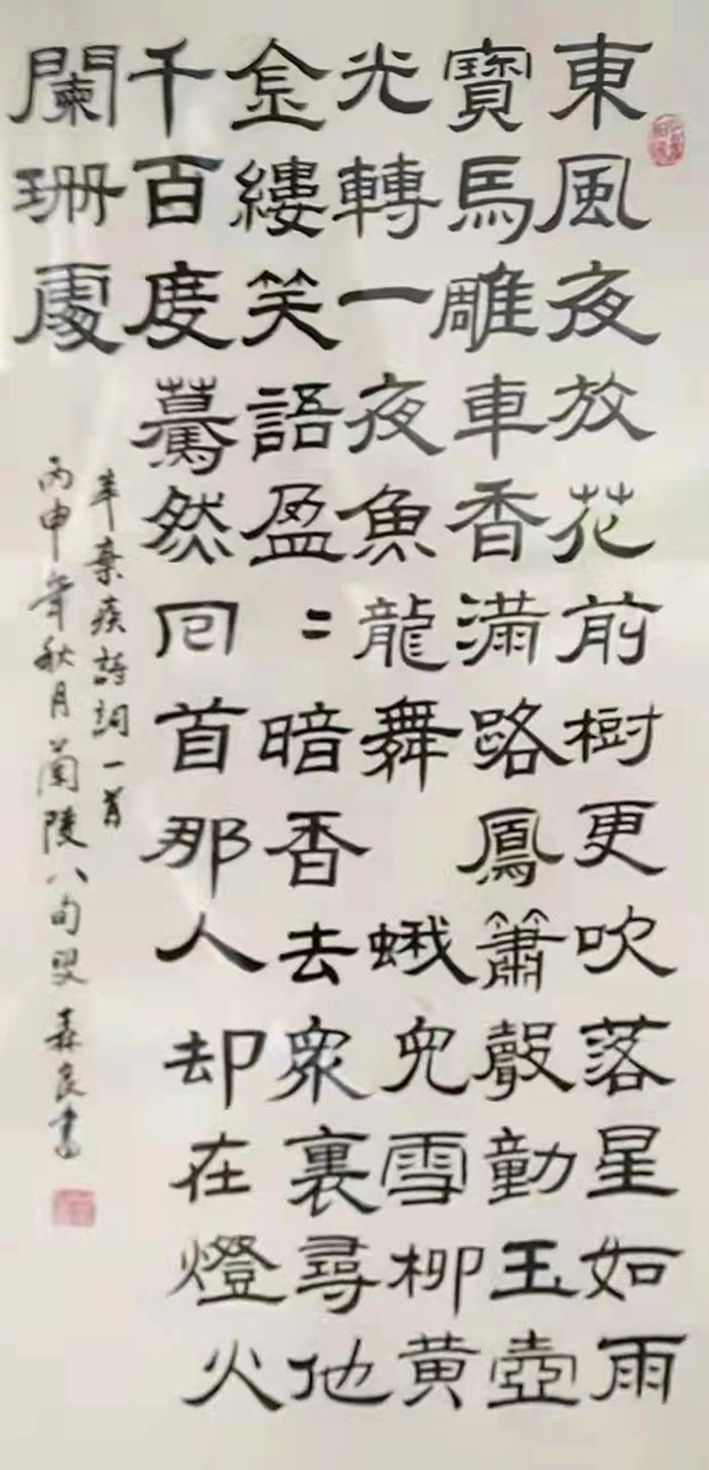 東風夜放花前樹更吹落星如雨
寶馬雕車香滿路鳳簫聲動玉壺
光轉一夜魚龍舞 蛾兒雪柳黄
金縷笑語盈〻暗香去衆裏尋他
千百度驀然回首那人却在燈火
闌珊處
辛棄疾詩詞一首
丙申年秋月蘭陵八旬叟森良書